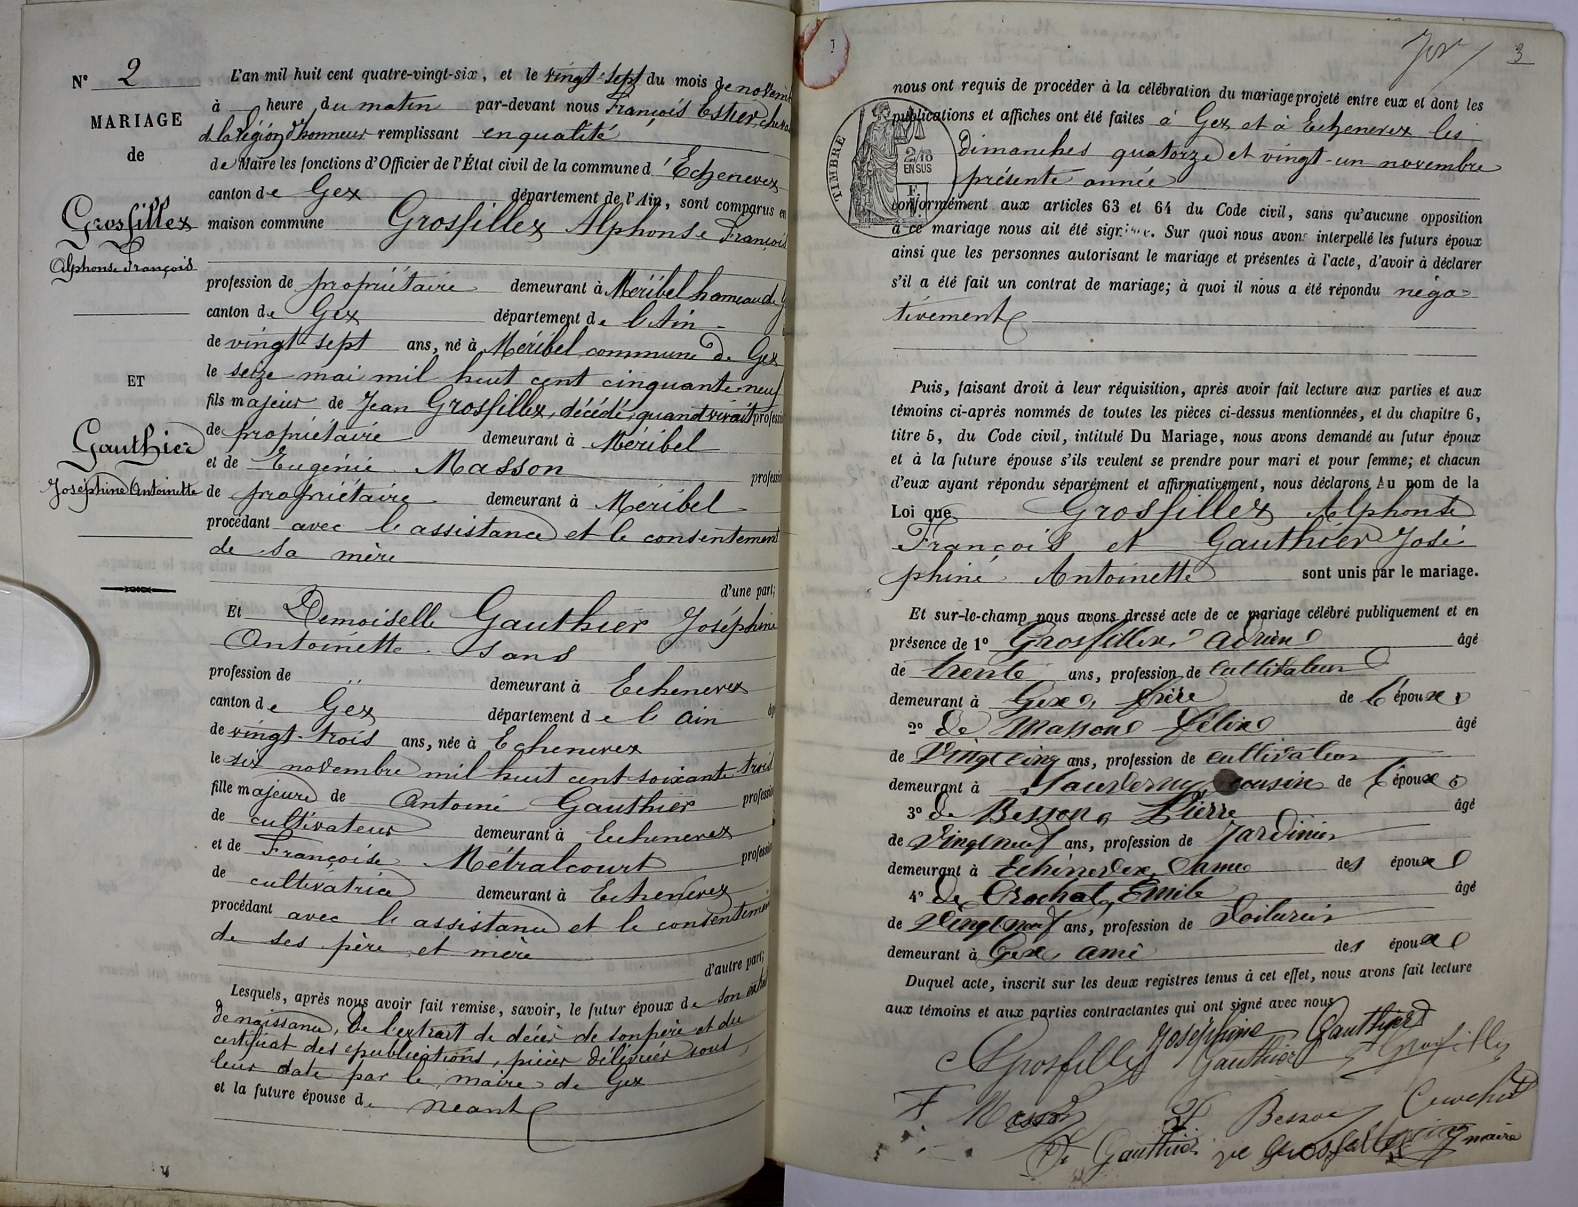 N° 2
MARIAGE
de
Grosfillex
Alphonse François
ET
Gauthier
Joséphine Antoinette
L'an mil huit cent quatre-vingt-six, et le vingt-sept du mois de novem
à heure du matin par-devant nous François Estier, cheva
d. la légion d'honneur remplissant en qualité
de Maire les fonctions d'Officier de l'État civil de la commune d'Echenevex
canton de Gex département de l'Ain, sont comparus en
maison commune Grosfillex Alphonse François
profession de propriétaire demeurant à Méribel hameau de
canton de Gex département de l'Ain
de vingt-sept ans, né à Méribel, commune de Gex
le seize mai mil huit cent cinquante-neuf
fils majeur de Jean Grosfillex, décédé, quand vivait profess
de propriétaire demeurant à Méribel
et de Eugénie Masson profession
de propriétaire demeurant à Méribel
procédant avec l'assistance et le consentement
de sa mère
d'une part;
Et Demoiselle Gauthier Joséphine
Antoinette sans
profession de demeurant à Echenevex
canton de Gex département de l'Ain
de vingt-trois ans, née à Echenevex
le six novembre mil huit cent soixante-trois
fille majeure de Antoine Gauthier profession
de cultivateur demeurant à Echenevex
et de Françoise Métralcourt profession
de cultivatrice demeurant à Echenevex
procédant avec l'assistance et le consentemen
de ses père et mère
d'autre part;
Lesquels, après nous avoir fait remise, savoir, le futur époux de son extrait
de naissance, de l'extrait de décès de son père et du
certificat des publications, pièces délivrées sous
leur date par le maire de Gex
et la future épouse de néant
3
nous ont requis de procéder à la célébration du mariage projeté entre eux et dont les
publications et affiches ont été faites à Gex et à Echenevex les
dimanches quatorze et vingt-un novembre
présente année
TIMBRE
2/10
EN SUS
conformément aux articles 63 et 64 du Code civil, sans qu'aucune opposition
à ce mariage nous ait été signifiée. Sur quoi nous avons interpellé les futurs époux
ainsi que les personnes autorisant le mariage et présentes à l'acte, d'avoir à déclarer
s'il a été fait un contrat de mariage; à quoi il nous a été répondu néga-
tivement
Puis, faisant droit à leur réquisition, après avoir fait lecture aux parties et aux
témoins ci-après nommés de toutes les pièces ci-dessus mentionnées, et du chapitre 6,
titre 5, du Code civil, intitulé Du Mariage, nous avons demandé au futur époux
et à la future épouse s'ils veulent se prendre pour mari et pour femme; et chacun
d'eux ayant répondu séparément et affirmativement, nous déclarons Au nom de la
Loi que Grosfillex Alphonse
François et Gauthier José
phine Antoinette sont unis par le mariage.
Et sur-le-champ nous avons dressé acte de ce mariage célébré publiquement et en
présence de 1° Grosfillex, Adrien âgé
de trente ans, profession de cultivateur
demeurant à Gex, frère de l'époux
2° de Masson Félix âgé
de Vingt cinq ans, profession de cultivateur
demeurant à cousin de l'époux
3° de Besson, Pierre âgé
de Vingt neuf ans, profession de Jardinier
demeurant à Echenevex, ami des époux
4° de Crochat, Emile âgé
de Vingt neuf ans, profession de Voiturier
demeurant à Gex, ami des époux
Duquel acte, inscrit sur les deux registres tenus à cet effet, nous avons fait lecture
aux témoins et aux parties contractantes qui ont signé avec nous
A Grosfillex Joséphine Gauthier
Gauthier Grosfillex
F Masson P Besson Crochat
F Gauthier ve Grosfillex maire